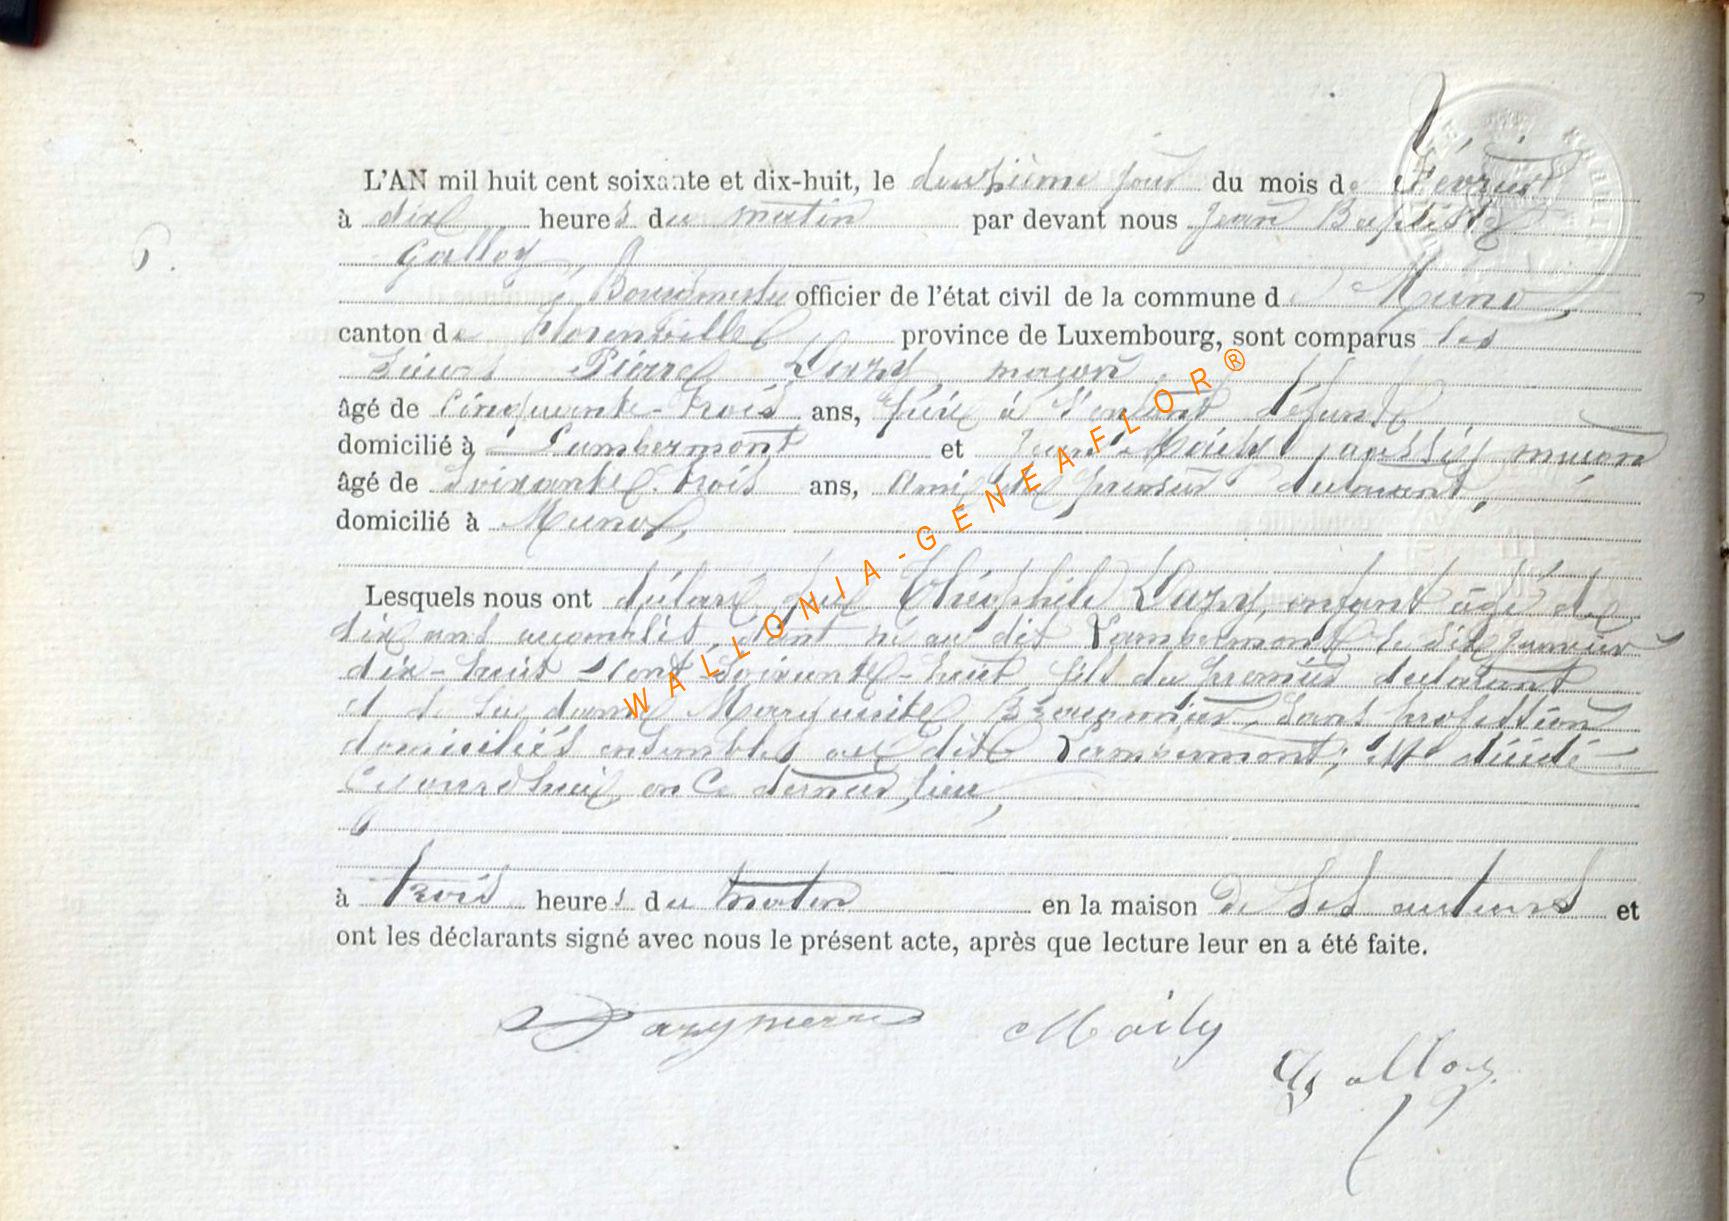 L'AN mil huit cent soixante et dix-huit, le deuxième jour du mois de Février
à dix heures du matin par devant nous Jean Baptiste
6.
Galloy,
Bourgmestre officier de l'état civil de la commune de Muno,
canton de Florenville province de Luxembourg, sont comparus les
sieurs Pierre Dazy, maçon
âgé de Cinquante-trois ans, père à l'enfant défunt
domicilié à Lambermont et Jean Maily aussi maçon
âgé de Soixante-trois ans, ami du premier déclarant,
domicilié à Muno,
Lesquels nous ont déclaré que Théophile Dazy, enfant âgé de
dix ans accomplis, étant né au dit Lambermont le dix janvier
dix-huit cent soixante-huit, fils du premier déclarant
et de la dame Marguerite sans profession
domiciliés ensemble au dit Lambermont; est décédé
Cejourd'hui en ce dernier lieu,
à trois heures du matin en la maison de ses auteurs et
ont les déclarants signé avec nous le présent acte, après que lecture leur en a été faite.
Dazy pierre Maily
Galloy
WALLONIA-GENEAFLOR®